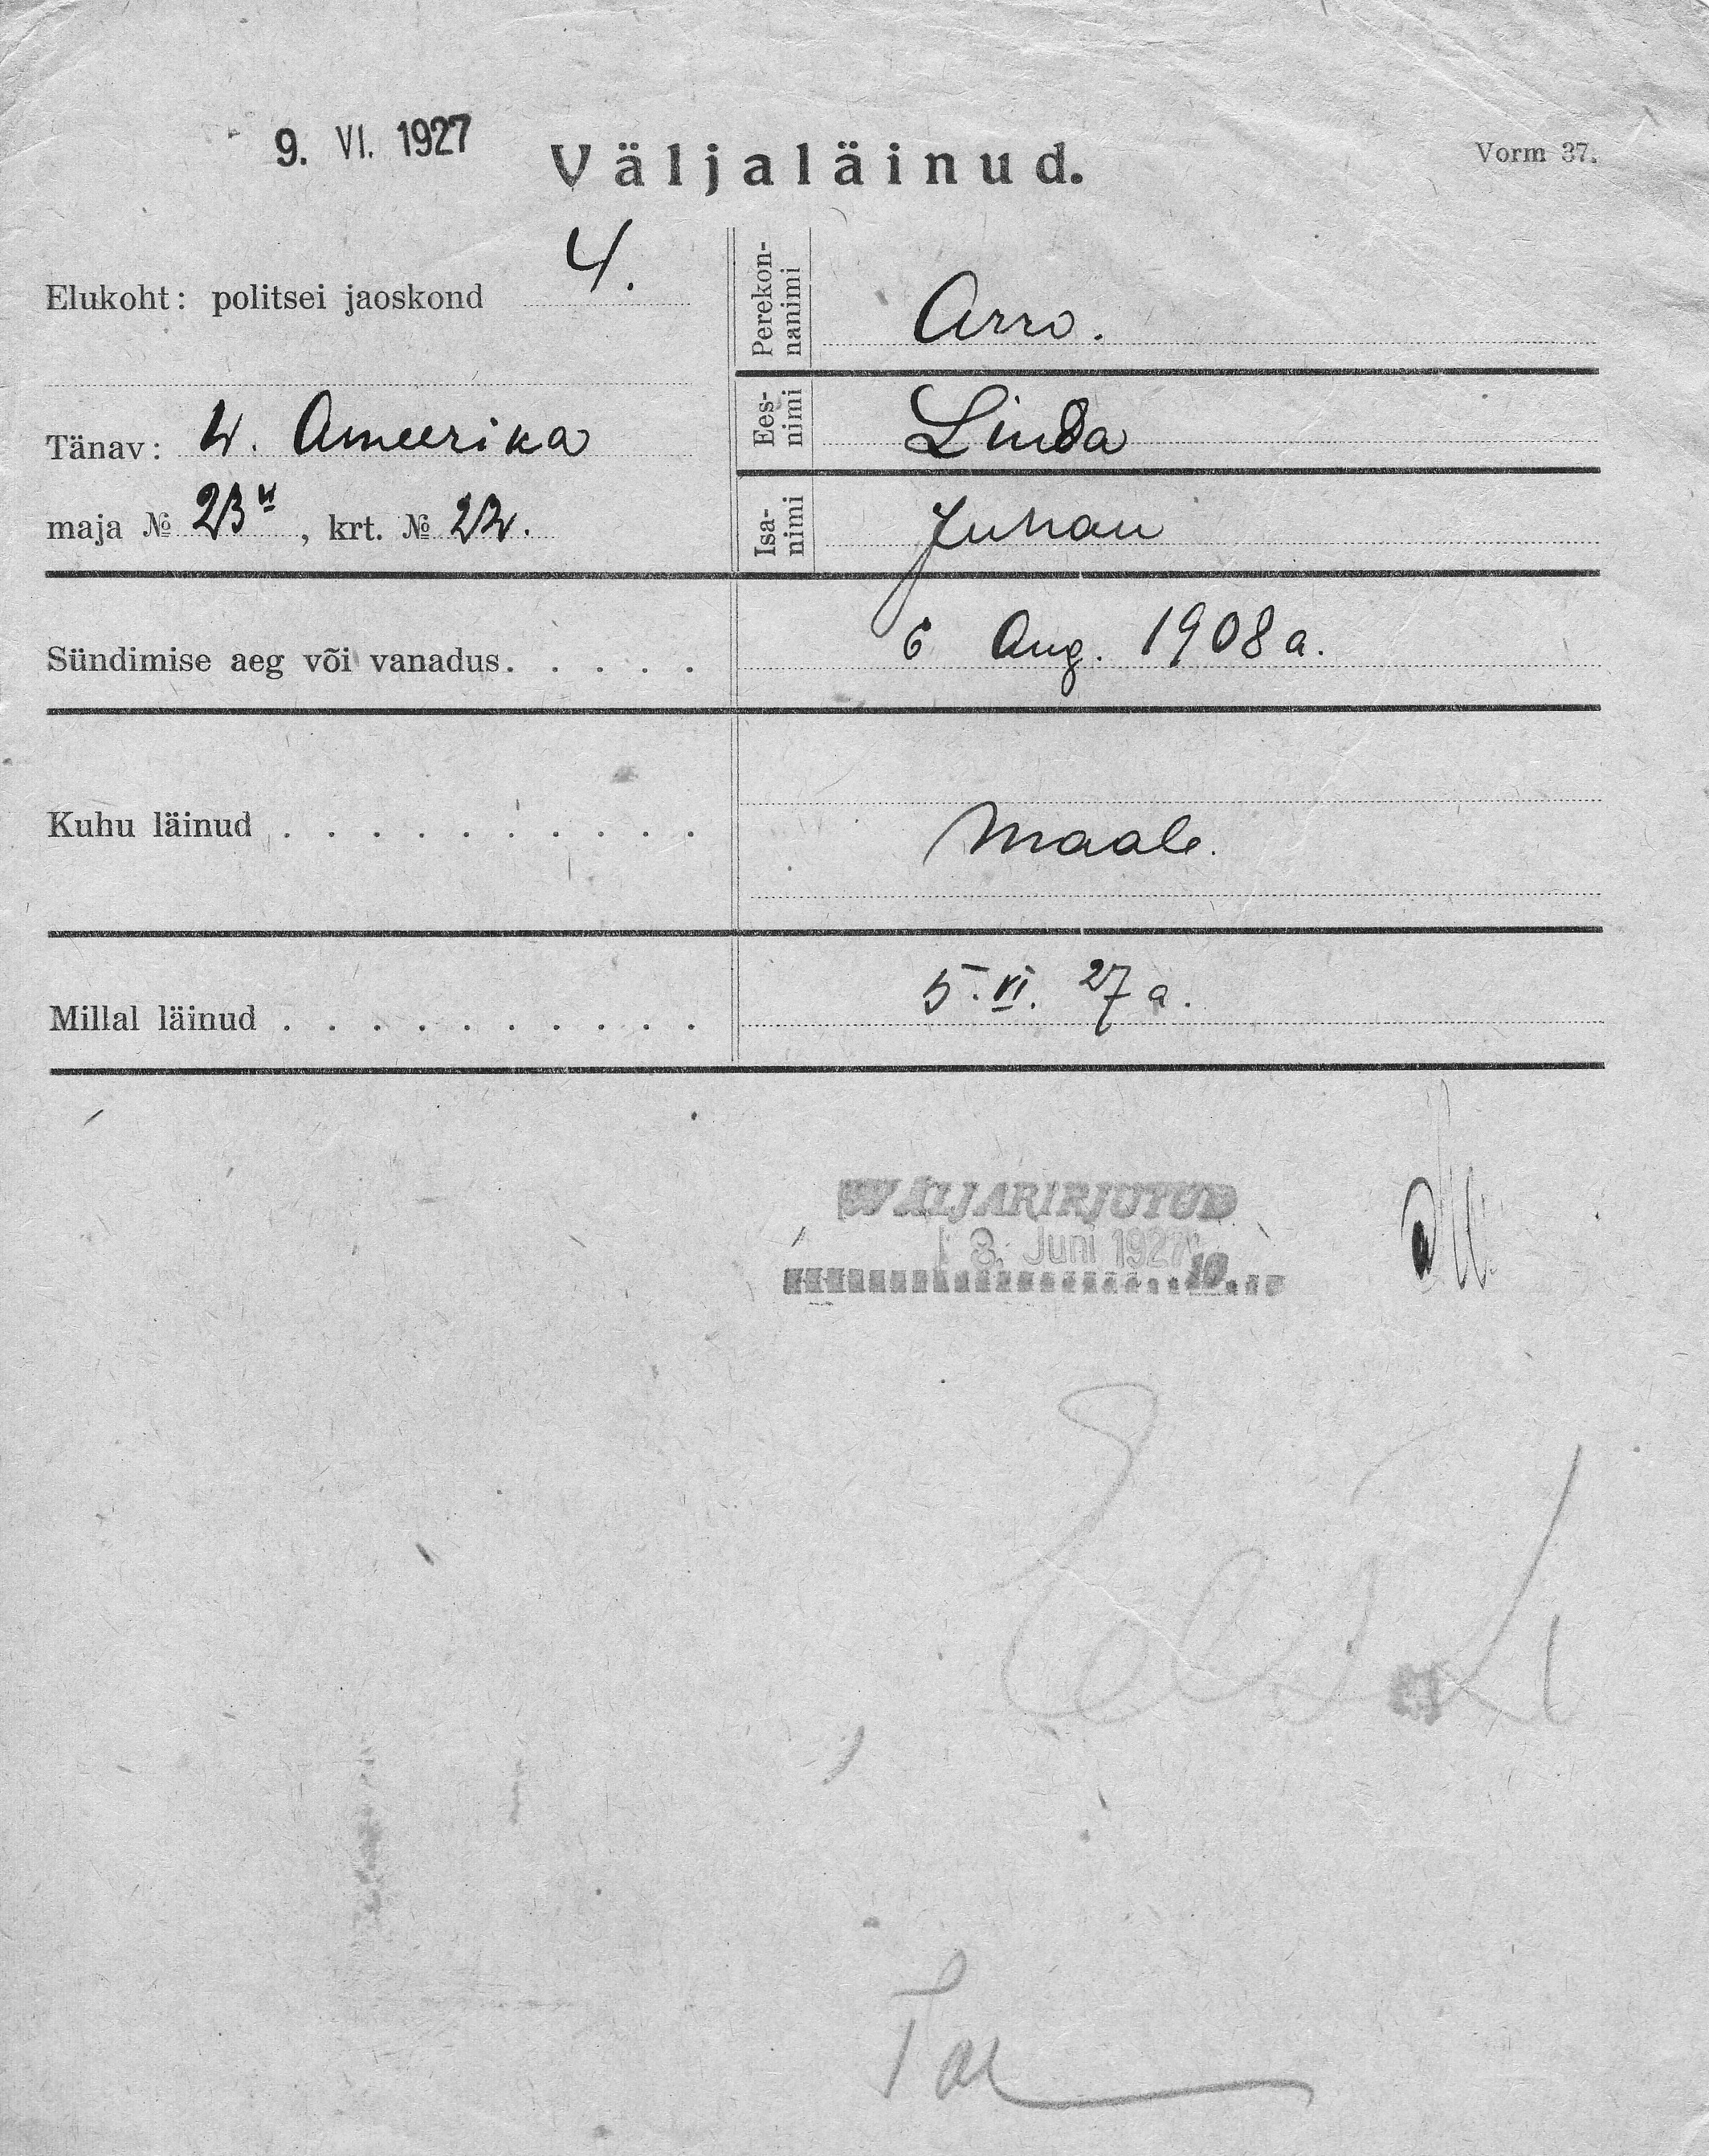 9. VI. 1927
Väljaläinud.
Vorm 37.
Elukoht: politsei jaoskond 4.
Tänav: W. Ameerika
maja № 23ᵃ, krt. № 22.
Perekon-
nanimi
Arro.
Ees-
nimi
Linda
Isa-
nimi
Juhan
Sündimise aeg või vanadus. . . . . . 6 Aug. 1908 a.
Kuhu läinud . . . . . . . . . . Maale.
Millal läinud . . . . . . . . . . 5. VI. 27 a.
WÄLJAKIRJUTUD
8. Juni 1927
19